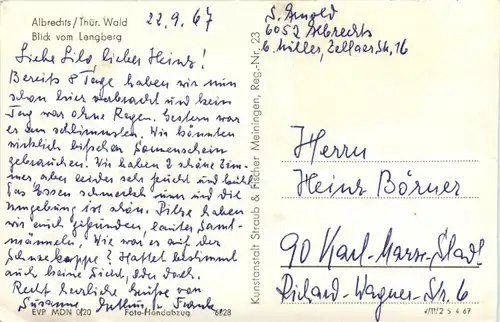 Albrechts/Thür. Wald
Blick vom Lengberg
22.9.67
Liebe Lilo, lieber Heinz!
Bereits 8 Tage haben wir nun
schon hier verbracht und kein
Tag war ohne Regen. Gestern war
es am schlimmsten. Wir könnten
wirklich bißchen Sonnenschein
gebrauchen. Wir haben 2 schöne Zim-
mer, aber leider sehr feucht und kühl.
Das Essen schmeckt uns und die
Umgebung ist schön. Pilze haben
wir auch gefunden, lauter Samt-
manneln. Wie war es auf der
Schneekoppe? Hattet bestimmt
auch keine Sicht, oder doch.
Recht herzliche Grüße von
Susanne, Frank
EVP MDN 0,20 Foto-Handabzug 6128
Kunstanstalt Straub & Fischer Meiningen, Reg.-Nr. 23
S. Arnold
6052 Albrechts
b. Müller, Zellaer Str. 16
Herrn
Heinz Börner
90 Karl-Marx-Stadt
Richard-Wagner-Str. 6
V/11/2 S 4 67